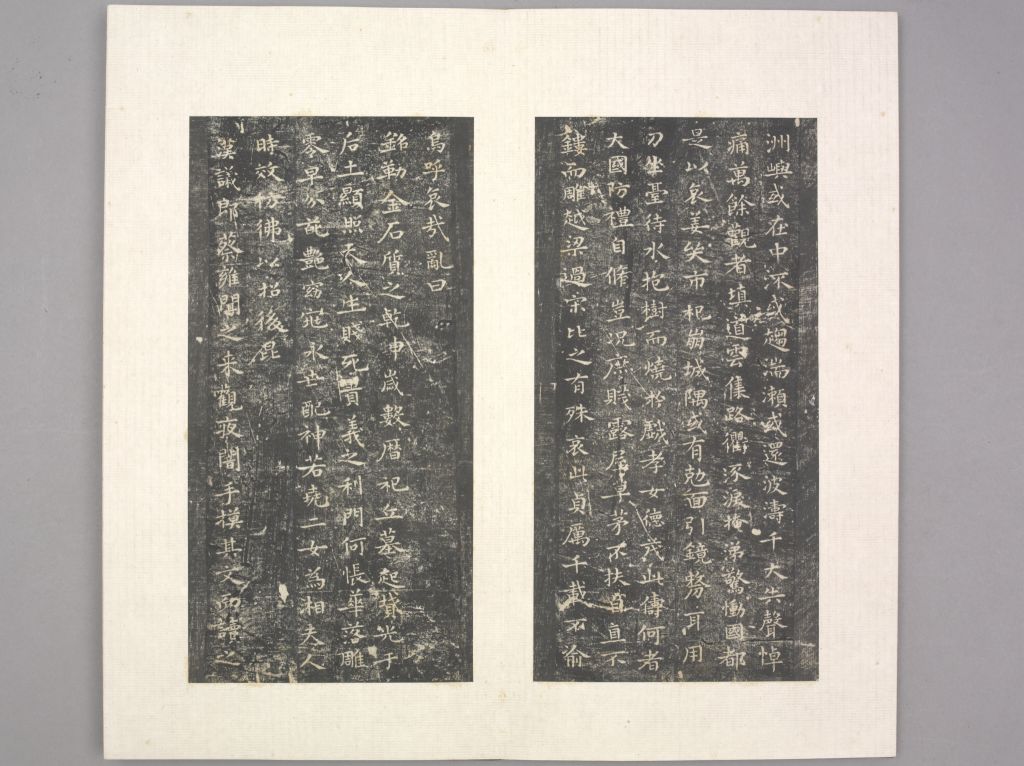 洲嶼或在中流或趨湍瀨或還波濤千夫失聲悼
痛萬餘觀者填道雲集路衢泳淚掩涕驚慟國都
是以哀姜哭市杞崩城隅或有剋面引鏡剺耳用
刀坐臺待水抱樹而燒於戲孝女德茂此儔何者
大國防禮自脩豈況庶賤露屋草茅不扶自直不
鏤而雕越梁過宋比之有殊哀此貞厲千載不渝
嗚呼哀哉亂曰
銘勒金石質之乾坤歲數曆祀丘墓起墳光于
后土顯照天人生賤死貴義之利門何悵華落雕
零早分葩艷窈窕永世配神若堯二女為相夫人
時效仿彿以招後昆
漢議郎蔡雍聞之来觀夜闇手摸其文而讀之